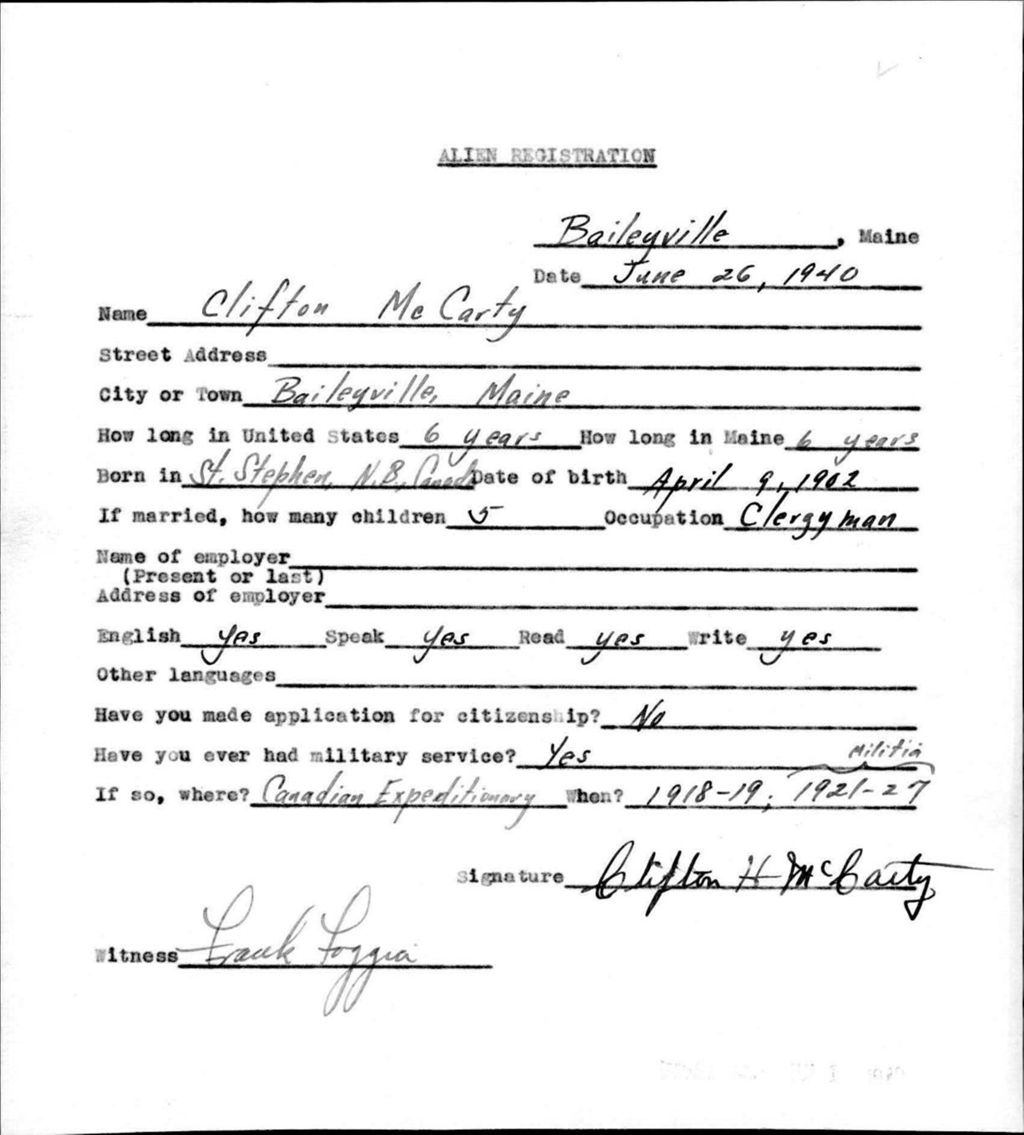 ALIEN REGISTRATION
Baileyville, Maine
Date June 26, 1940
Name Clifton McCarty
Street Address
City or Town Baileyville, Maine
How long in United States 6 years How long in Maine 6 years
Born in St. Stephen, N.B., Canad Date of birth April 9, 1902
If married, how many children 5 Occupation Clergyman
Name of employer
(Present or last)
Address of employer
English yes Speak yes Read yes Write yes
Other languages
Have you made application for citizenship? No
Have you ever had military service? Yes Militia
If so, where? Canadian Expeditionary When? 1918-19; 1921-27
Signature Clifton H McCarty
Witness Frank Foggia